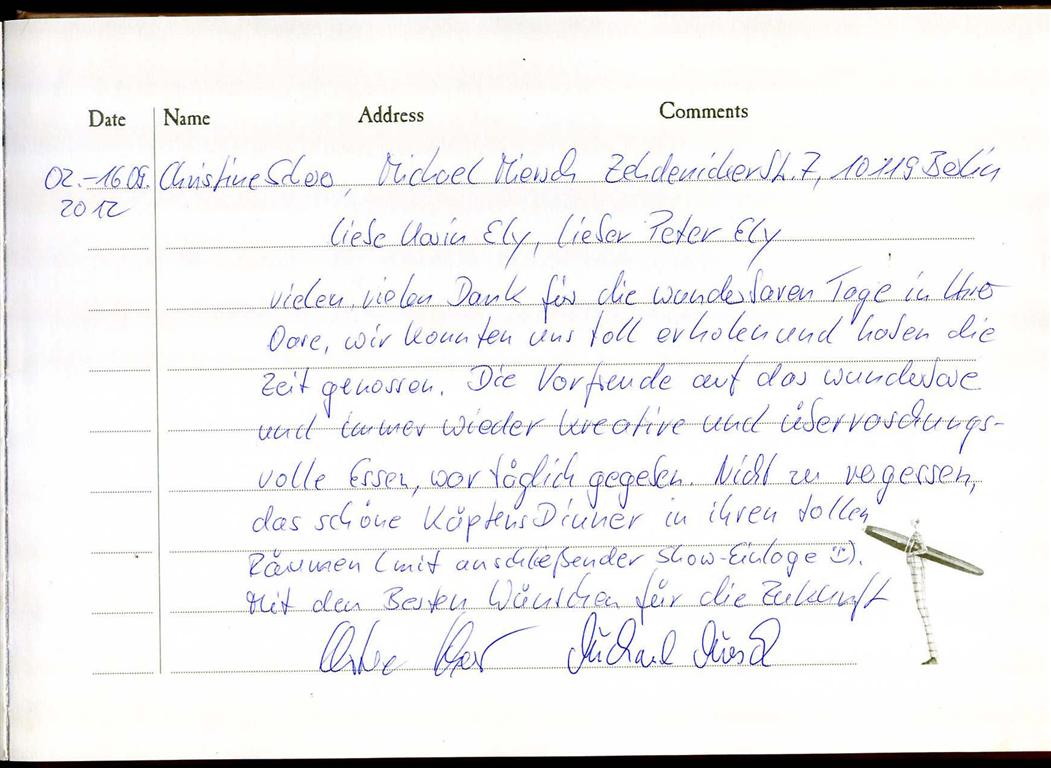 Date Name Address Comments
02.-16.09. Christine Michael Zehdenickerstr. 7, 10119 Berlin
2012
liebe Karin Ely, lieber Peter Ely
vielen, vielen Dank für die wunderbaren Tage in
Oase, wir konnten uns toll erholen und haben die
Zeit genossen. Die Vorfreude auf das wunderbare
und immer wieder kreative und überraschungs-
volle Essen, war täglich gegeben. Nicht zu vergessen,
das schöne Käptens Dinner in ihren tollen
Räumen (mit anschließender Show-Einlage ☺).
Mit den Besten Wünschen für die Zukunft
Michael